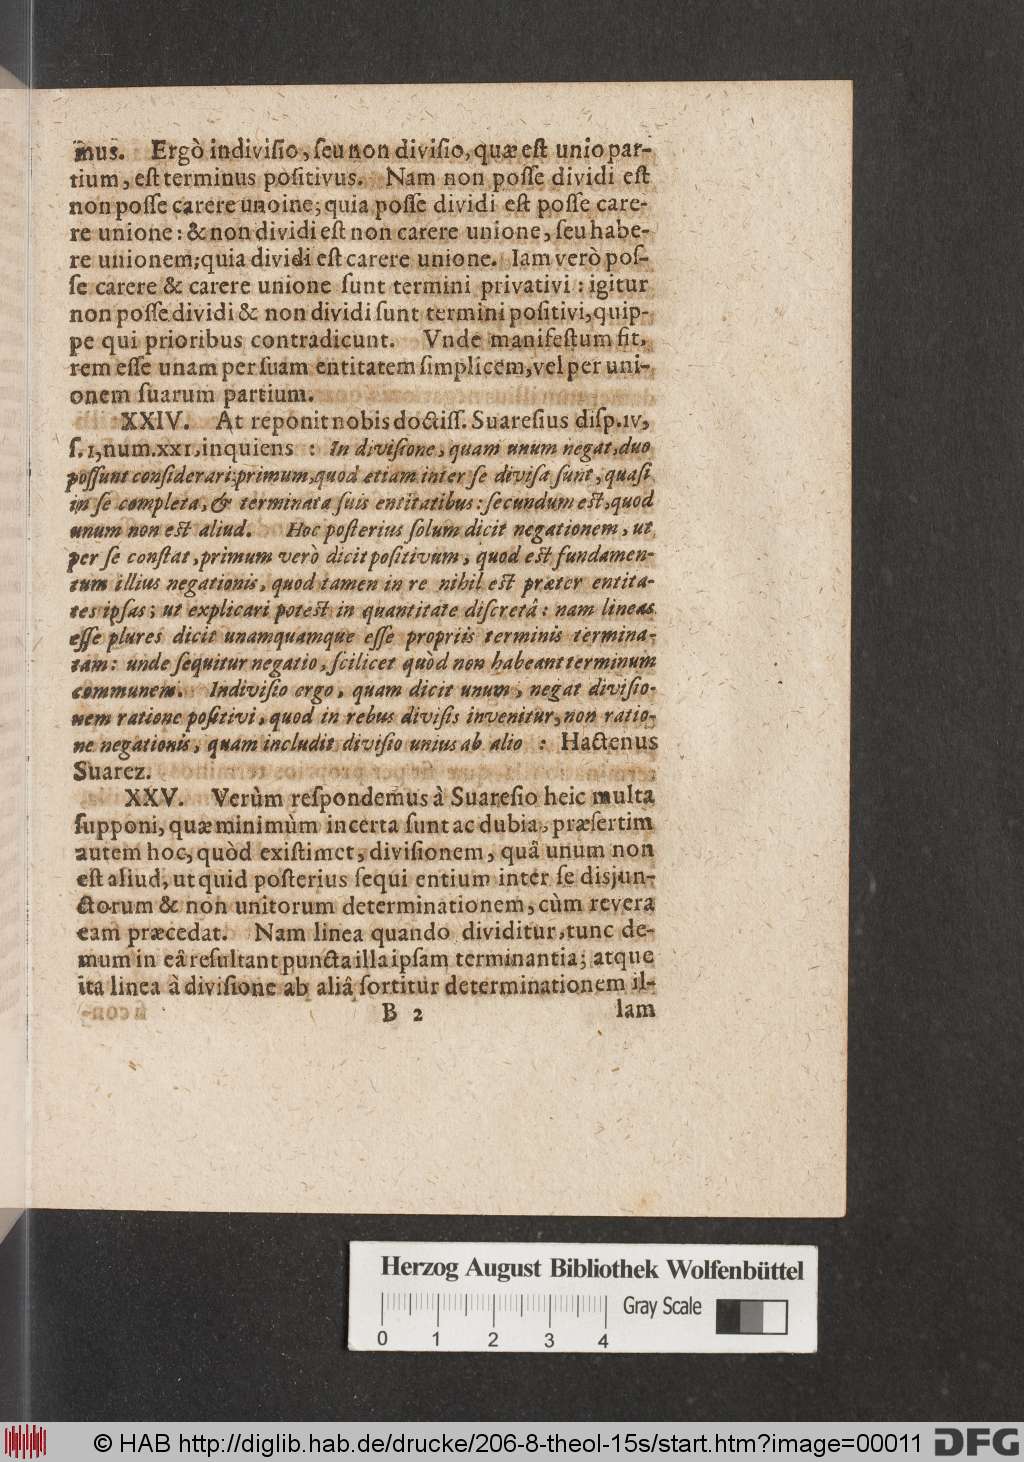 mus. Ergò indiviſio, ſeu non diviſio, quæ eſt unio par-
tium, eſt terminus poſitivus. Nam non poſſe dividi eſt
non poſſe carere unoine; quia poſſe dividi eſt poſſe care-
re unione: & non dividi eſt non carere unione, ſeu habe-
re unionem; quia dividi eſt carere unione. Iam verò poſ-
ſe carere & carere unione ſunt termini privativi: igitur
non poſſe dividi & non dividi ſunt termini poſitivi, quip-
pe qui prioribus contradicunt. Vnde manifeſtum fit,
rem eſſe unam per ſuam entitatem ſimplicem, vel per uni-
onem ſuarum partium.
XXIV. At reponit nobis doctiſſ. Suareſius diſp. IV,
ſ. 1, num. XXI, inquiens : In diviſione, quam unum negat, duo
poſſunt conſiderari: primum, quod etiam inter ſe diviſa ſunt, quaſi
in ſe completa, & terminata ſuis entitatibus: ſecundum eſt, quod
unum non eſt aliud. Hoc poſterius ſolum dicit negationem, ut
per ſe conſtat, primum verò dicit poſitivum, quod eſt fundamen-
tum illius negationis, quod tamen in re nihil eſt præter entita-
tes ipſas; ut explicari poteſt in quantitate diſcretâ: nam lineas
eſſe plures dicit unamquamque eſſe propriis terminis termina-
tam: unde ſequitur negatio, ſcilicet quòd non habeant terminum
communem. Indiviſio ergo, quam dicit unum, negat diviſio-
nem ratione poſitivi, quod in rebus diviſis invenitur, non ratio-
ne negationis, quam includit diviſio unius ab alio : Hactenus
Suarez.
XXV. Verùm reſpondemus à Suareſio heic multa
ſupponi, quæ minimùm incerta ſunt ac dubia, præſertim
autem hoc, quòd exiſtimet, diviſionem, quâ unum non
eſt aliud, ut quid poſterius ſequi entium inter ſe disjun-
ctorum & non unitorum determinationem, cùm revera
eam præcedat. Nam linea quando dividitur, tunc de-
mum in eâ reſultant puncta illa ipſam terminantia; atque
ita linea à diviſione ab aliâ ſortitur determinationem il-
B 2 lam
Herzog August Bibliothek Wolfenbüttel
Gray Scale
0 1 2 3 4
© HAB http://diglib.hab.de/drucke/206-8-theol-15s/start.htm?image=00011
DFG